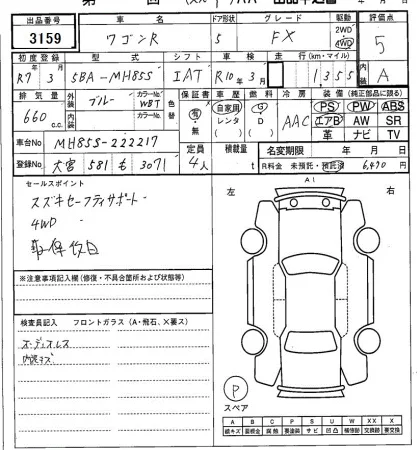 出品番号 車名 ドア形状 グレード 駆動 評価点
3159 ワゴンR 5 FX 2WD 4WD 5
初度登録 型式 シフト 車検 走行 (km・マイル)
R7年3月 5BA-MH85S IAT R10年3月 1,355 A
排気量 外装色 カラーNo. 色替 保証書 車歴 燃料 冷房 装備 (純正部品に限る)
660 c.c. ブルー WBT 有・無 自家用 レンタ G D AAC PS PW ABS
内装色 カラーNo. エアB AW SR
革 ナビ TV
車台No. MH85S-222217 定員 積載量 名変期限 年 月 日
登録No. 大宮 581 も 3071 4人 t R料金 未預託・預託済 6,470 円
セールスポイント
スズキセーフティサポート
4WD
左 右
※注意事項記入欄(修復・不具合箇所および状態等)
検査員記入 フロントガラス(A・飛石、X要ス)
オーディオレス
内装キズ
P
スペア
A B C P S U W XX X